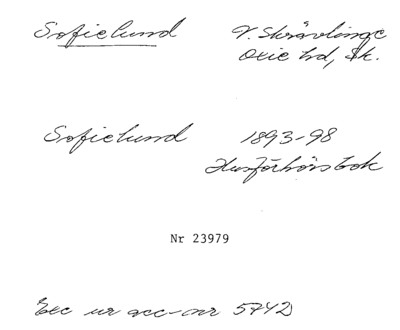 Sofielund V. Skrävlinge
Oxie hd, Sk.
Sofielund 1893-98
Husförhörsbok
Nr 23979
Exc ur acc-nr 5742